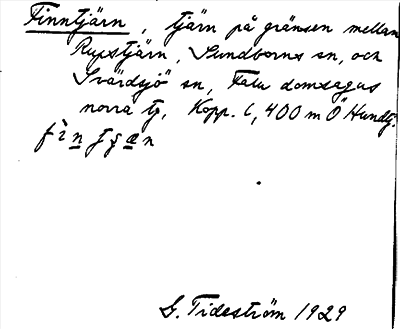 Finntjärn, tjärn på gränsen mellan
Rupstjärn, Sundborns sn, och
Svärdsjö sn, Falu domsagas
norra tg, Kopp. l, 400 m Ö Hundtj.
G. Tideström 1929